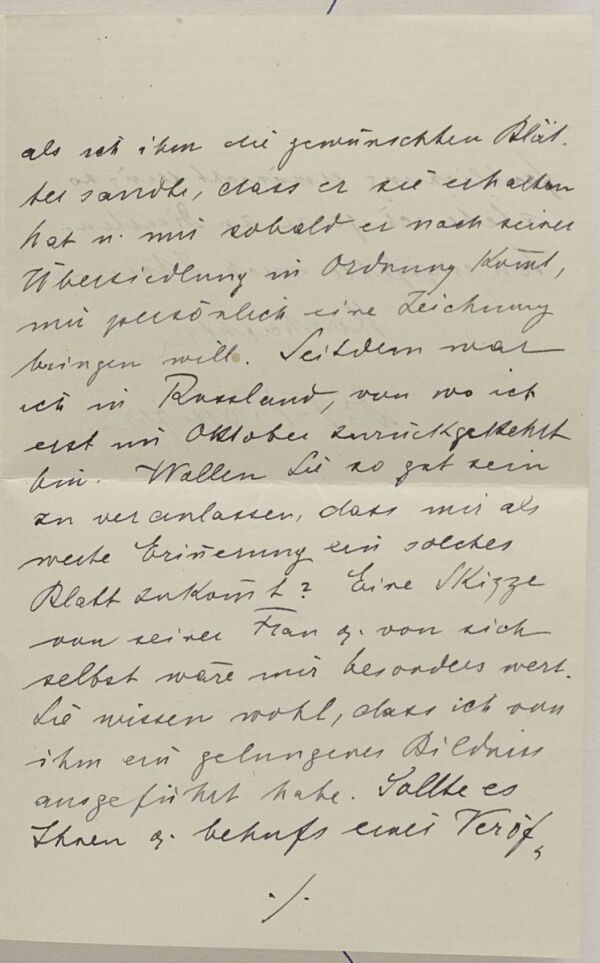 als ich ihm die gewünschten Blät-
ter sandte, dass er sie erhalten
hat u. mir sobald er nach seiner
Übersiedlung in Ordnung kom̅t,
mir persönlich eine Zeichnung
bringen will. Seitdem war
ich in Russland, von wo ich
erst im Oktober zurückgekehrt
bin. Wollen Sie so gut sein
zu veranlassen, dass mir als
werte Erin̅erung ein solches
Blatt zukom̅t? Eine Skizze
von seiner Frau o. von sich
selbst wäre mir besonders wert.
Sie wissen wohl, dass ich von
ihm ein gelungenes Bildniss
ausgeführt habe. Sollte es
Ihnen o. behufs einer Veröf-
./.